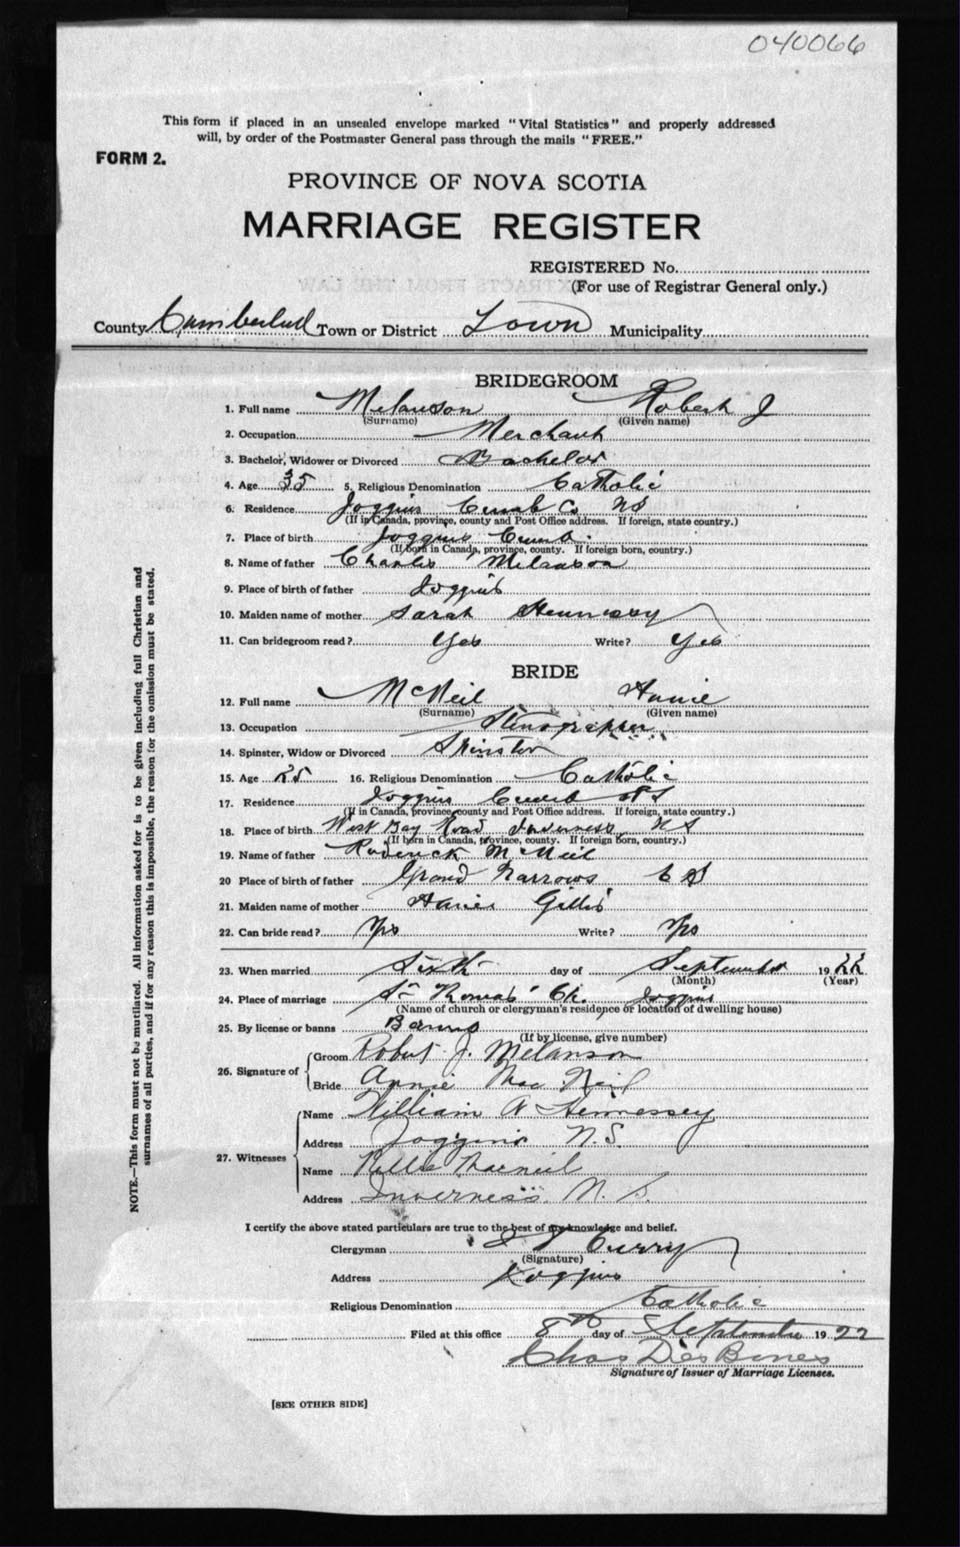 040066
This form if placed in an unsealed envelope marked "Vital Statistics" and properly addressed
will, by order of the Postmaster General pass through the mails "FREE."
FORM 2.
PROVINCE OF NOVA SCOTIA
MARRIAGE REGISTER
REGISTERED No.
(For use of Registrar General only.)
County Cumberland Town or District Town Municipality
BRIDEGROOM
1. Full name Melanson Robert J
(Surname) (Given name)
2. Occupation Merchant
3. Bachelor, Widower or Divorced Bachelor
4. Age 35 5. Religious Denomination Catholic
6. Residence Joggins Cumb Co NS
(If in Canada, province, county and Post Office address. If foreign, state country.)
7. Place of birth Joggins Cumb.
(If born in Canada, province, county. If foreign born, country.)
8. Name of father Charles Melanson
9. Place of birth of father Joggins
10. Maiden name of mother Sarah Hennessy
11. Can bridegroom read? Yes Write? Yes
BRIDE
12. Full name McNeil Annie
(Surname) (Given name)
13. Occupation Stenographer
14. Spinster, Widow or Divorced Spinster
15. Age 25 16. Religious Denomination Catholic
17. Residence Joggins Cumb NS
(If in Canada, province, county and Post Office address. If foreign, state country.)
18. Place of birth West Bay Road Inverness, NS
(If born in Canada, province, county. If foreign born, country.)
19. Name of father Roderick McNeil
20 Place of birth of father Grand Narrows CB
21. Maiden name of mother Annie Gillis
22. Can bride read? Yes Write? Yes
23. When married Sixth day of September 1922
(Month) (Year)
24. Place of marriage St Thomas' Ch. Joggins
(Name of church or clergyman's residence or location of dwelling house)
25. By license or banns Banns
(If by license, give number)
26. Signature of Groom Robert J. Melanson
Bride Annie MacNeil
27. Witnesses Name William A Hennessey
Address Joggins N.S.
Name Macneil
Address Inverness N.S.
I certify the above stated particulars are true to the best of my knowledge and belief.
Clergyman Curry
(Signature)
Address Joggins
Religious Denomination Catholic
Filed at this office 8th day of September 1922
Chas Des Barres
Signature of Issuer of Marriage Licenses.
[SEE OTHER SIDE]
NOTE.—This form must not be mutilated. All information asked for is to be given including full Christian and
surnames of all parties, and if for any reason this is impossible, the reason for the omission must be stated.